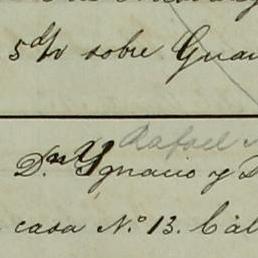 5 d/v sobre Gua
Rafael
Dn. Ygnacio y D
casa N.° 13. Cal